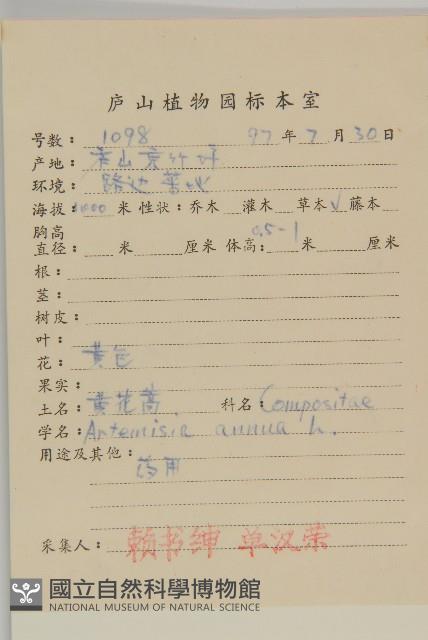 庐山植物园标本室
号数：1098 97年7月30日
产地：庐山黄竹坪
环境：路边
海拔：1000米 性状：乔木 灌木 草本√ 藤本
胸高
直径： 米 厘米 体高：0.5-1米 厘米
根：
茎：
树皮：
叶：
花：黄色
果实：
土名：黄花蒿. 科名：Compositae
学名：Artemisia annua L.
用途及其他：
药用
采集人：赖书绅 单汉荣
國立自然科學博物館
NATIONAL MUSEUM OF NATURAL SCIENCE